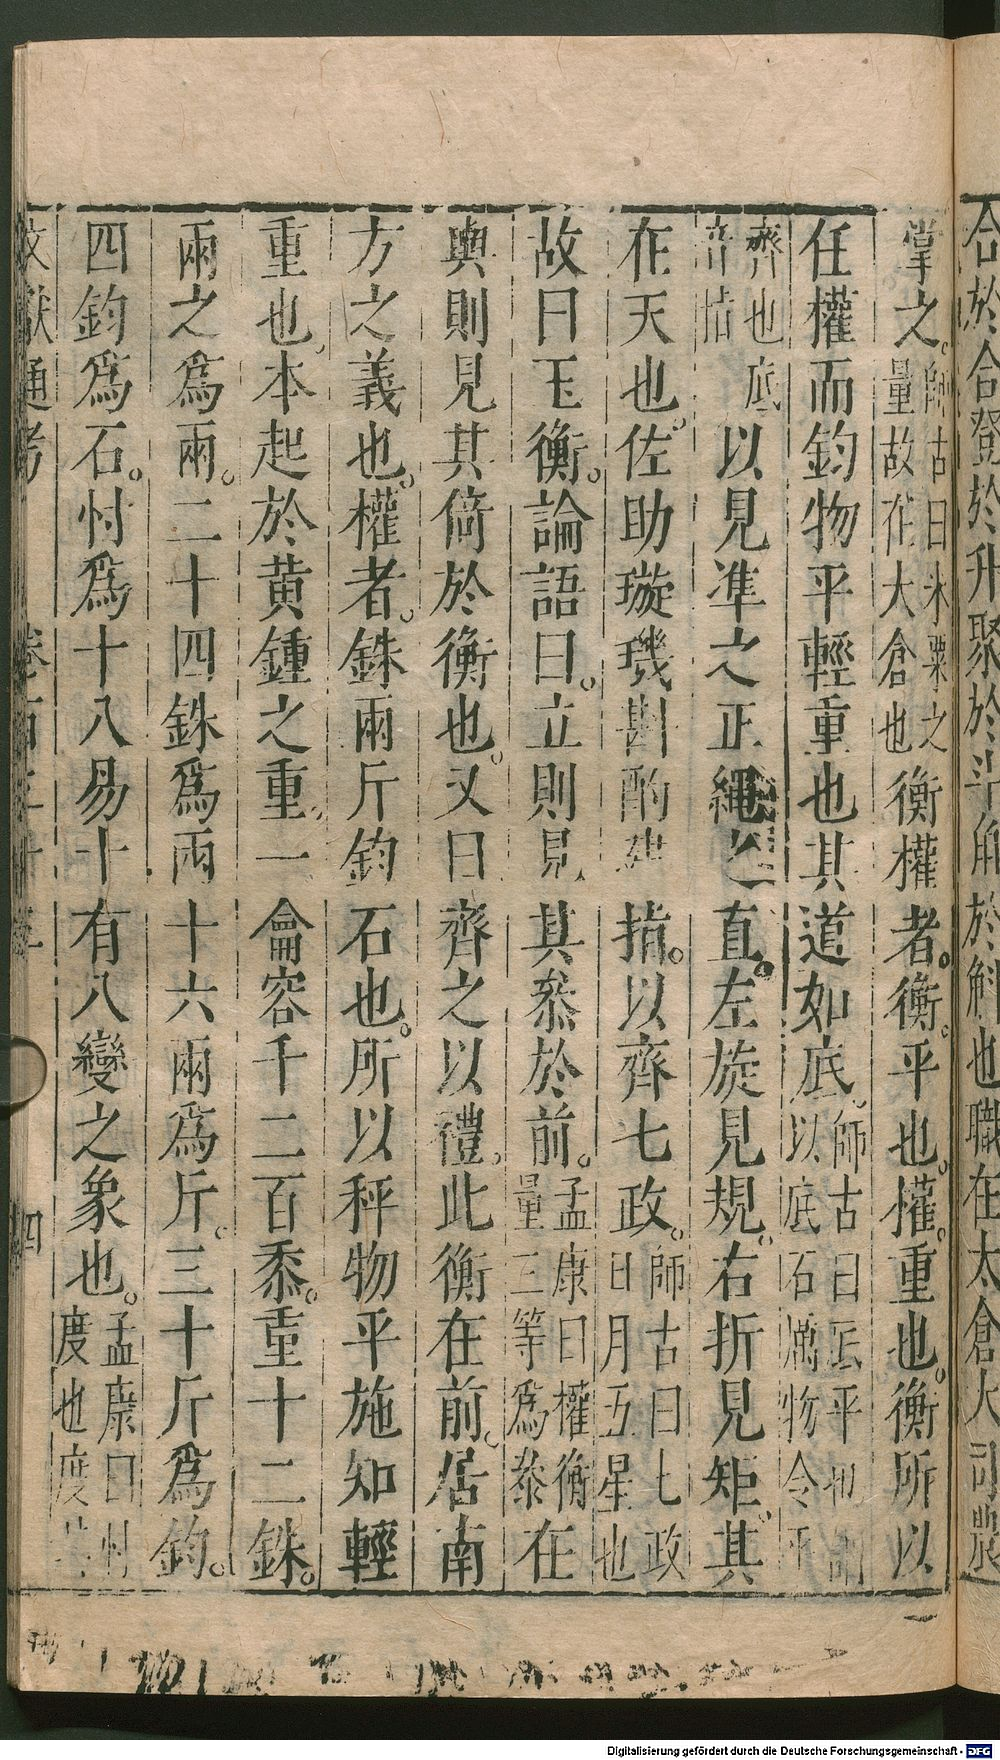 合於合登於升聚於斗角於斛也職在太倉大司農
掌之。師古曰米粟之量故在大倉也衡權者。衡。平也。權。重也。衡所以
任權而鈞物平輕重也其道如底。師古曰底平也謂以底石厲物令平
齊也底音指以見準之正繩之直。左旋見規。右折見矩。其
在天也。佐助璇璣斟酌建指。以齊七政。師古曰七政日月五星也
故曰玉衡。論語曰。立則見其叅於前。孟康曰權衡量三等為叅在
輿則見其倚於衡也。又曰齊之以禮。此衡在前。居南
方之義也。權者。銖兩斤鈞石也。所以秤物平施知輕
重也。本起於黄鍾之重。一龠容千二百黍。重十二銖。
兩之爲兩。二十四銖爲兩十六兩爲斤。三十斤爲鈞。
四鈞爲石。忖爲十八易十有八變之象也。孟康曰忖度也度
文獻通考 卷百三十三 四
Digitalisierung gefördert durch die Deutsche Forschungsgemeinschaft - DFG